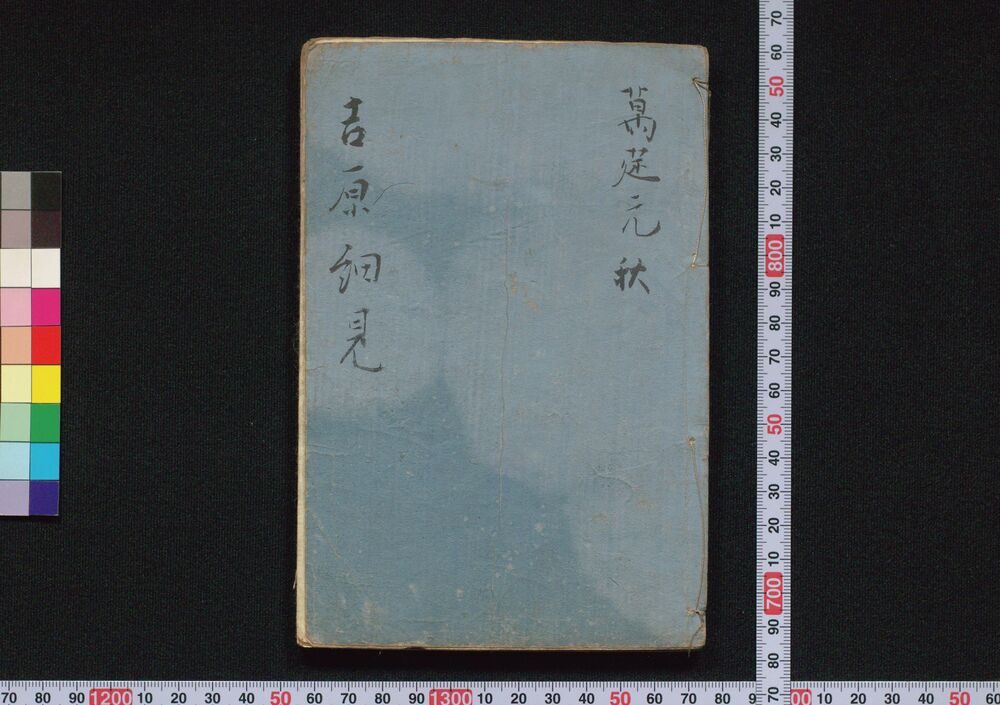 萬延元秋
吉原細見
70 60 50 40 30 20 10 800 90 80 70 60 50 40 30 20 10 700 90 80 70
70 80 90 1200 10 20 30 40 50 60 70 80 90 1300 10 20 30 40 50 60 70 80 9 00 10 20 30 40 50 60